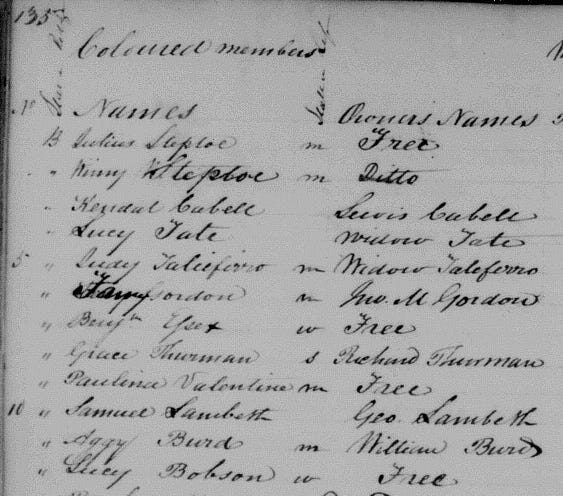 135
Coloured members
No Names Owners Names
B Julius Steptoe m Free
" Winny Steptoe m Ditto
" Kendal Cabell Lewis Cabell
" Lucy Tate Widow Tate
5 " Judy Talieferro m Widow Taleferro
" Fanny Gordon m Jno. M Gordon
" Benjn Essex w Free
" Grace Thurman s Richard Thurman
" Paulina Valentine m Free
10 " Samuel Lambeth Geo. Lambeth
" Aggy Burd m William Burd
" Lucy Bobson w Free